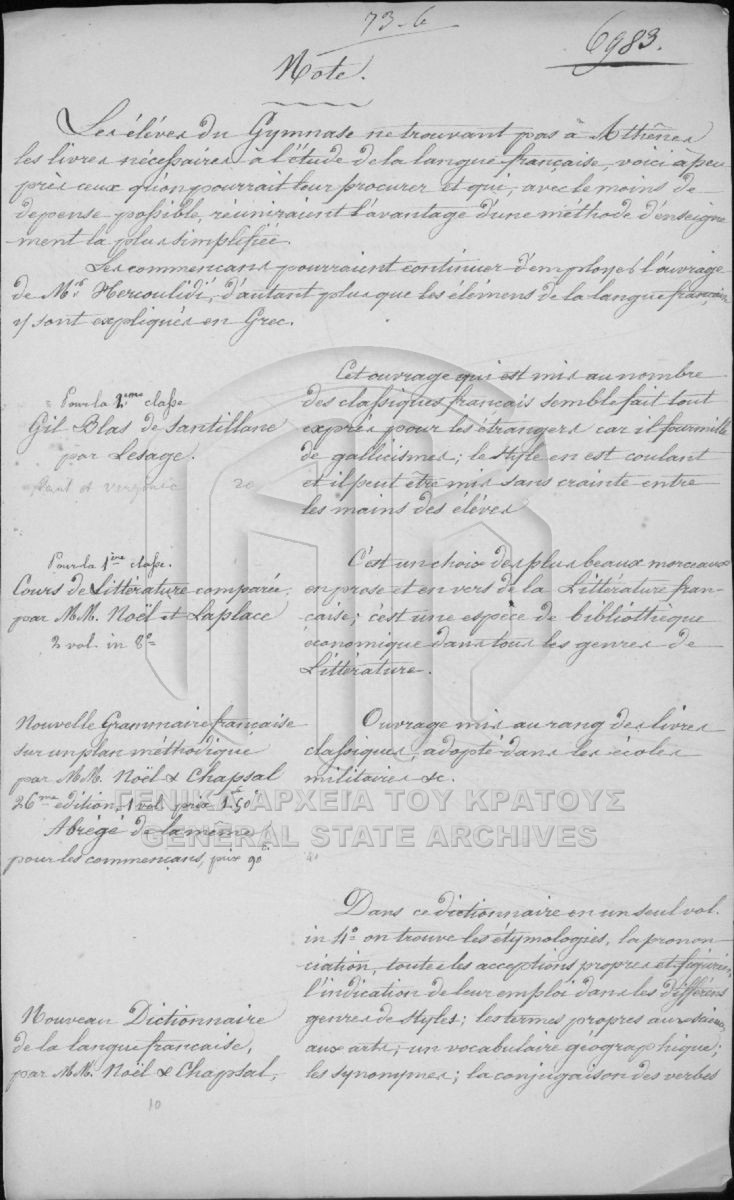 73-6
6983.
Note.
Les élèves du Gymnase ne trouvant pas à Athènes
les livres nécessaires à l'étude de la langue française, voici à peu
près ceux qu'on pourrait leur procurer et qui, avec le moins de
depense possible, réuniraient l'avantage d'une méthode d'enseigne
ment la plus simplifiée.
Les commençans pourraient continuer d'employer l'ouvrage
de Mr. Hercoulidi, d'autant plus que les élémens de la langue française
y sont expliqués en Grec.
Pour la 2ème classe
Gil Blas de Santillane
par Lesage.
Paul et Virginie 20
Cet ouvrage qui est mis au nombre
des classiques français semble fait tout
exprès pour les étrangers car il fourmille
de gallicismes; le style en est coulant
et il peut être mis sans crainte entre
les mains des élèves
Pour la 1ère classe.
Cours de Littérature comparée,
par M.M. Noël et Laplace
2 vol. in 8°
C'est un choix des plus beaux morceaux
en prose et en vers de la Littérature fran-
caise; c'est une espèce de bibliothèque
économique dans tous les genres de
Littérature.
Nouvelle Grammaire française
sur un plan méthodique
par M.M. Noël & Chapsal
26me edition, 1 vol. prix 1f 50c
Abrégé de la même
pour les commençans, prix 90c.
Ouvrage mis au rang des livres
classiques, adopté dans les écoles
militaires &c.
Nouveau Dictionnaire
de la langue française,
par M.M. Noël & Chapsal,
10
Dans ce dictionnaire en un seul vol.
in 4° on trouve les étymologies, la pronon
ciation, toutes les acceptions propres et figurées,
l'indication de leur emploi dans les différens
genres de styles; les termes propres aux sciences,
aux arts; un vocabulaire géographique;
les synonymes; la conjugaison des verbes
ΓΕΝΙΚΑ ΑΡΧΕΙΑ ΤΟΥ ΚΡΑΤΟΥΣ
GENERAL STATE ARCHIVES